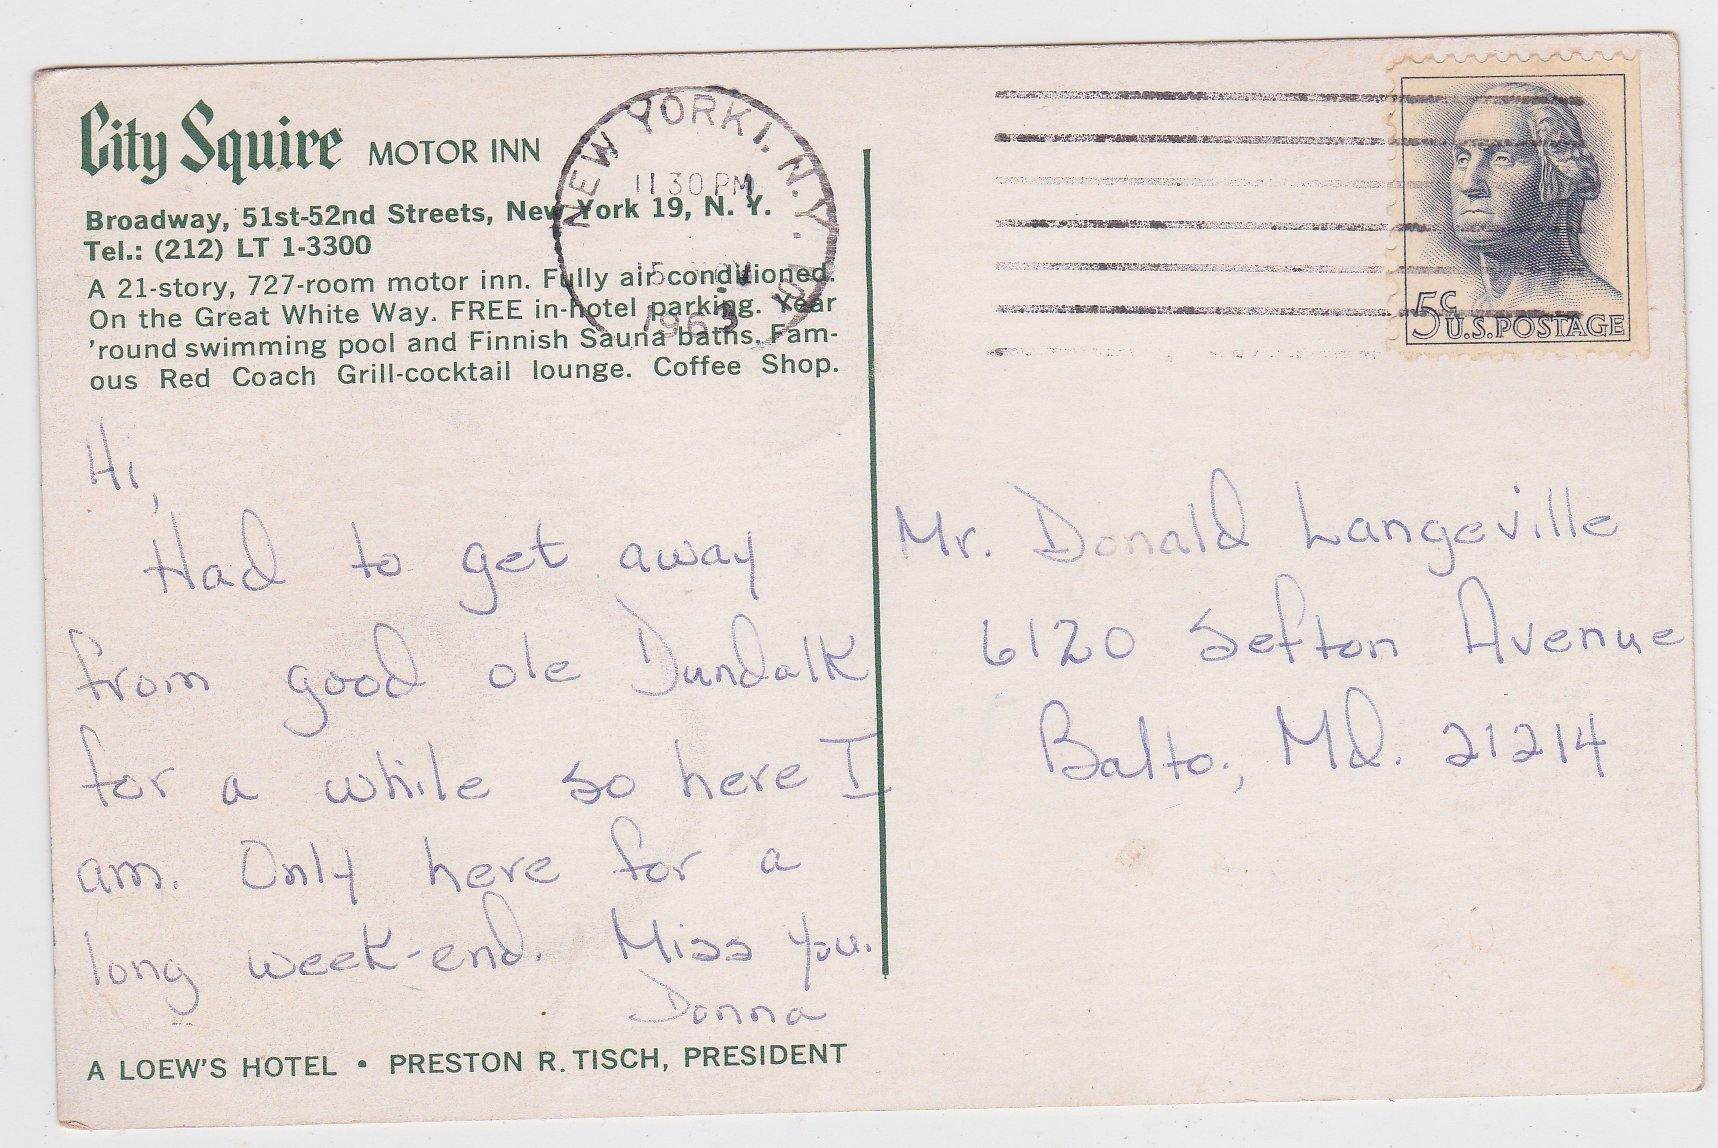 City Squire MOTOR INN
Broadway, 51st-52nd Streets, New York 19, N. Y.
Tel.: (212) LT 1-3300
A 21-story, 727-room motor inn. Fully air-conditioned.
On the Great White Way. FREE in-hotel parking. Year
'round swimming pool and Finnish Sauna baths. Fam-
ous Red Coach Grill-cocktail lounge. Coffee Shop.
NEW YORK 1, N.Y.
11 30 PM
15
1963
5¢ U.S. POSTAGE
Hi,
Had to get away
from good ole Dundalk
for a while so here I
am. Only here for a
long week-end. Miss you.
Donna
Mr. Donald Langeville
6120 Sefton Avenue
Balto., Md. 21214
A LOEW'S HOTEL • PRESTON R. TISCH, PRESIDENT